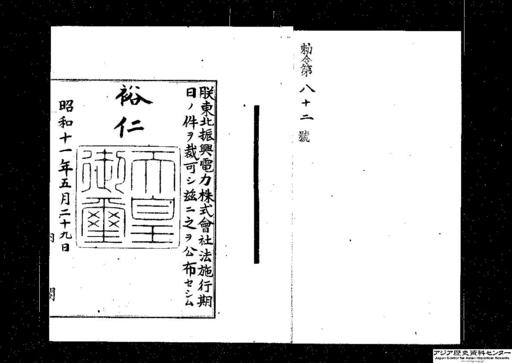 勅令第八十二號
朕東北振興電力株式會社法施行期
日ノ件ヲ裁可シ茲ニ之ヲ公布セシム
裕仁
天皇御璽
昭和十一年五月二十九日
内閣
アジア歴史資料センター
Japan Center for Asian Historical Records